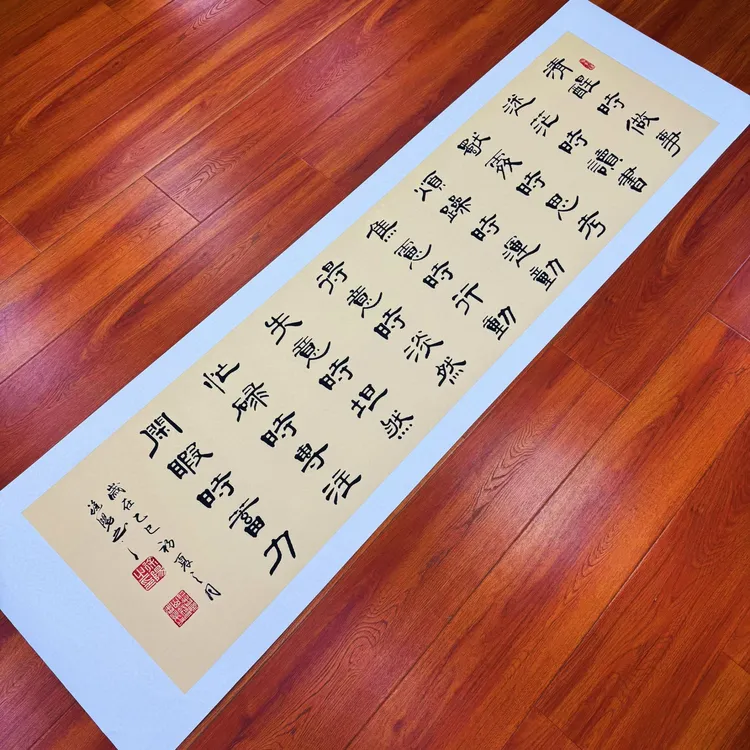 清醒時做事
迷茫時讀書
時思考
煩躁時運動
焦慮時行動
得意時淡然
失意時坦然
忙碌時專注
閑暇時蓄力
歲在乙巳初夏之月